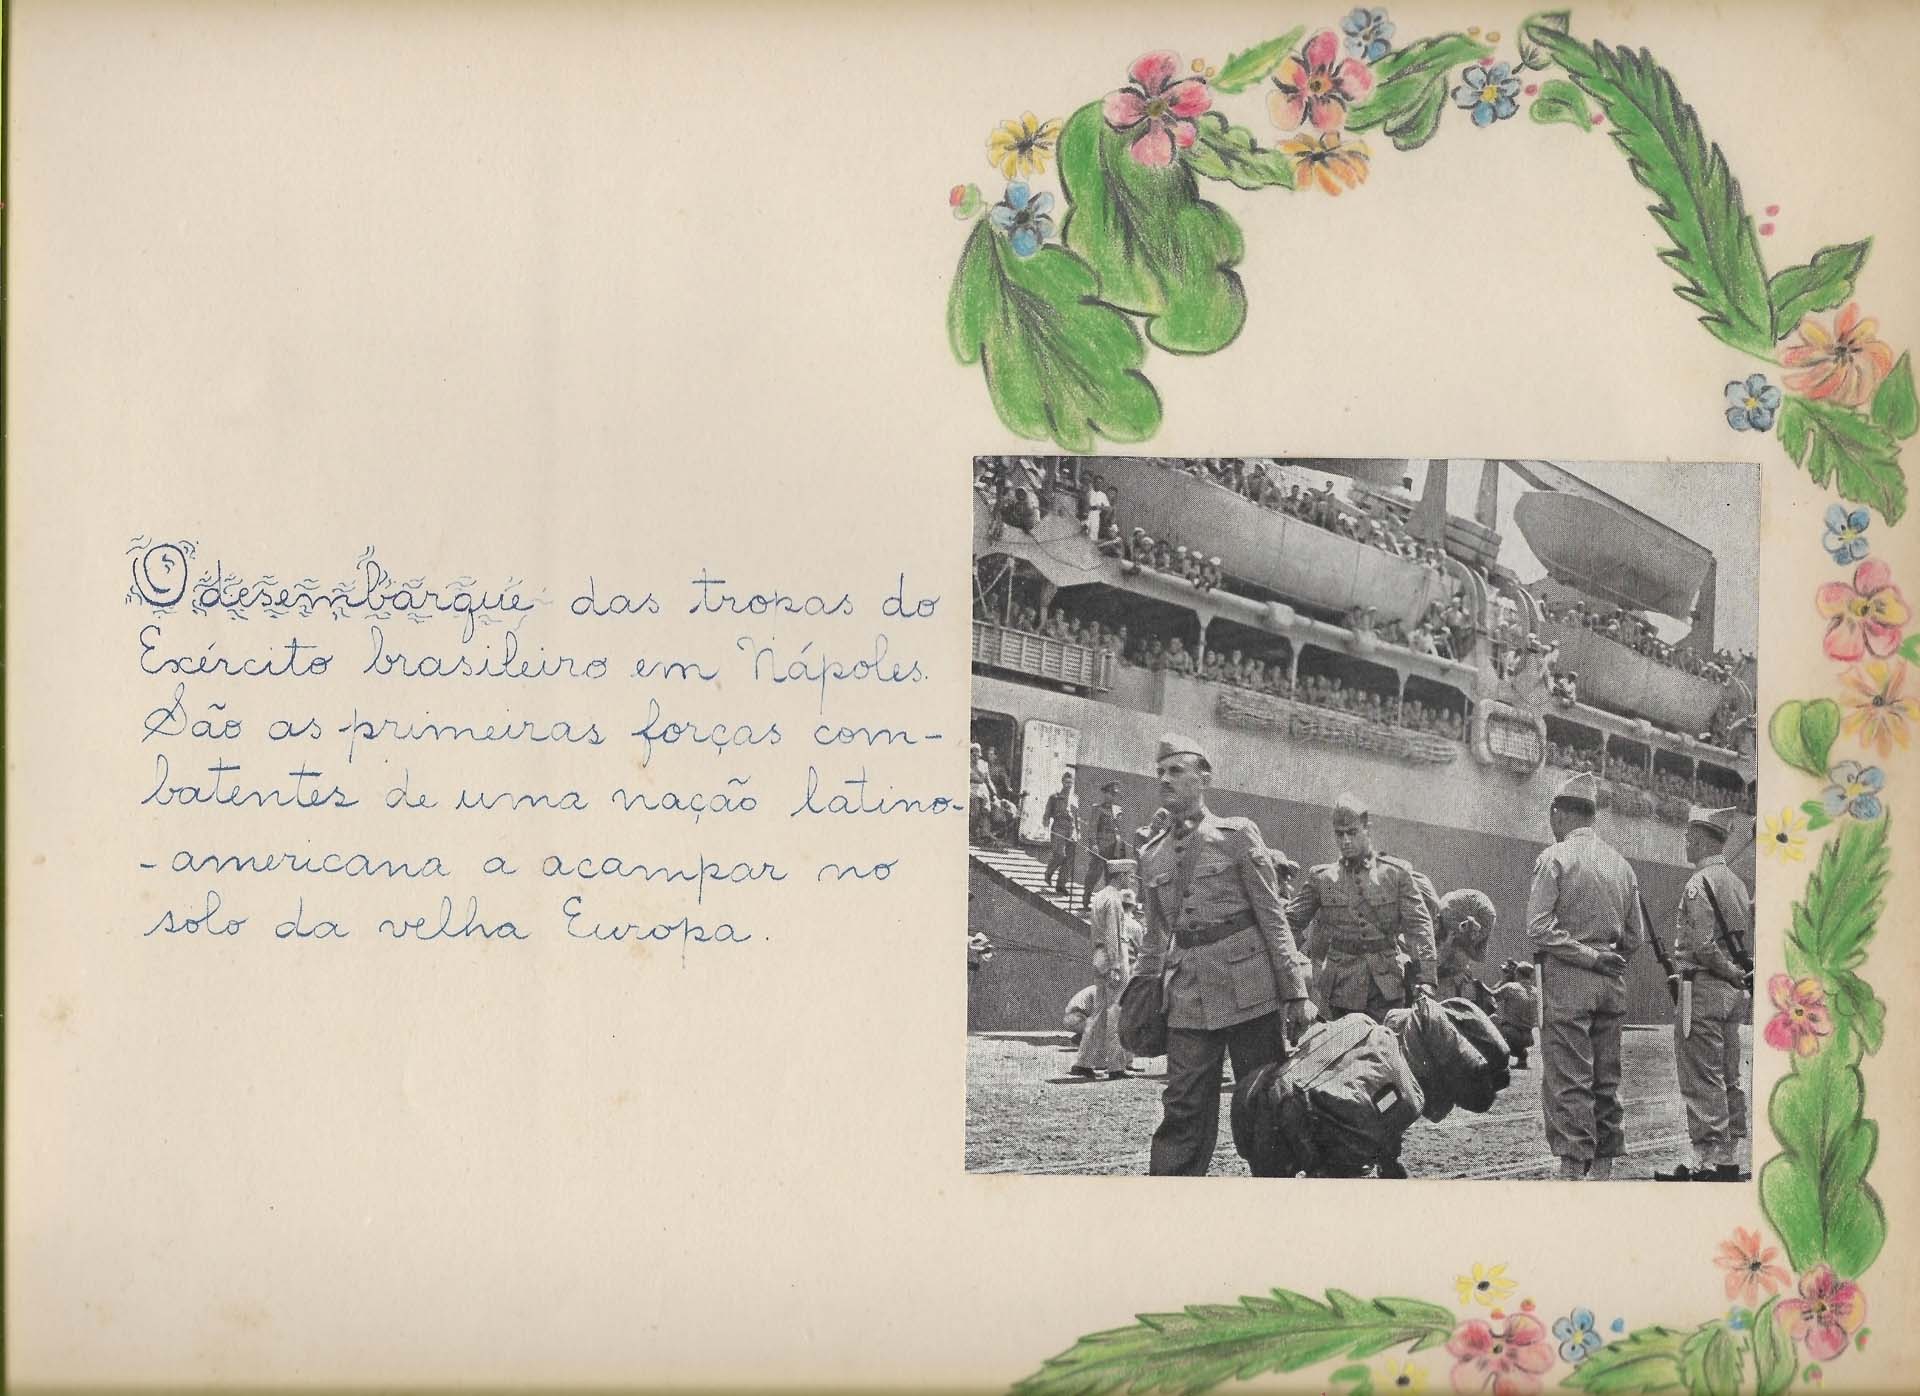 O desembarque das tropas do
Exército brasileiro em Nápoles.
São as primeiras forças com-
batentes de uma nação latino-
-americana a acampar no
solo da velha Europa.